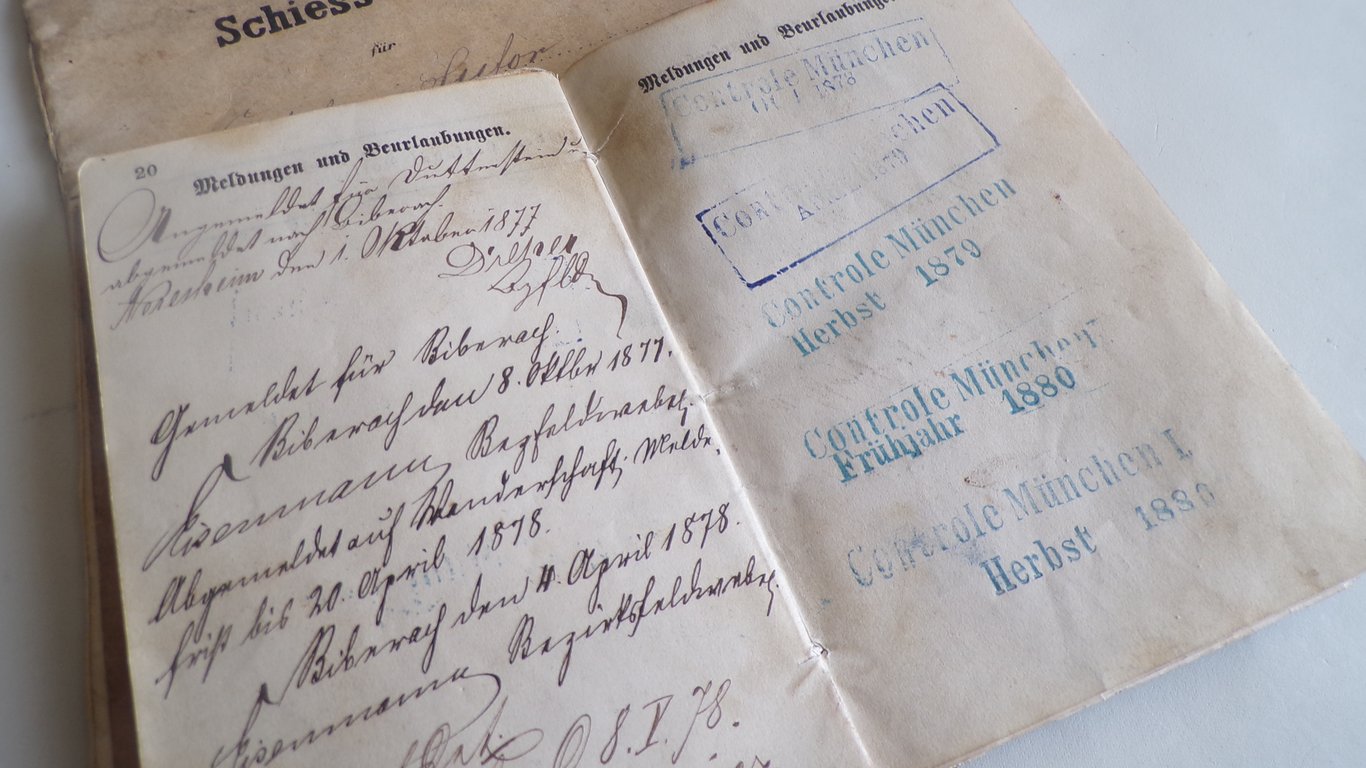 Schiess
für
20
Meldungen und Beurlaubungen.
Angemeldet für Duttenstein u.
abgemeldet nach Biberach.
den 1. Oktober 1877
Gemeldet für Biberach.
Biberach den 8. Oktbr 1877.
Eisenmann Bezfeldwebel.
Abgemeldet auf Wanderschaft; Melde-
frist bis 20. April 1878.
Biberach den 4. April 1878.
Eisenmann Bezirksfeldwebel.
8. V. 78.
Meldungen und Beurlaubungen
Controle München
1878
Controle München
1879
Controle München
Herbst 1879
Controle München
Frühjahr 1880
Controle München I.
Herbst 1880